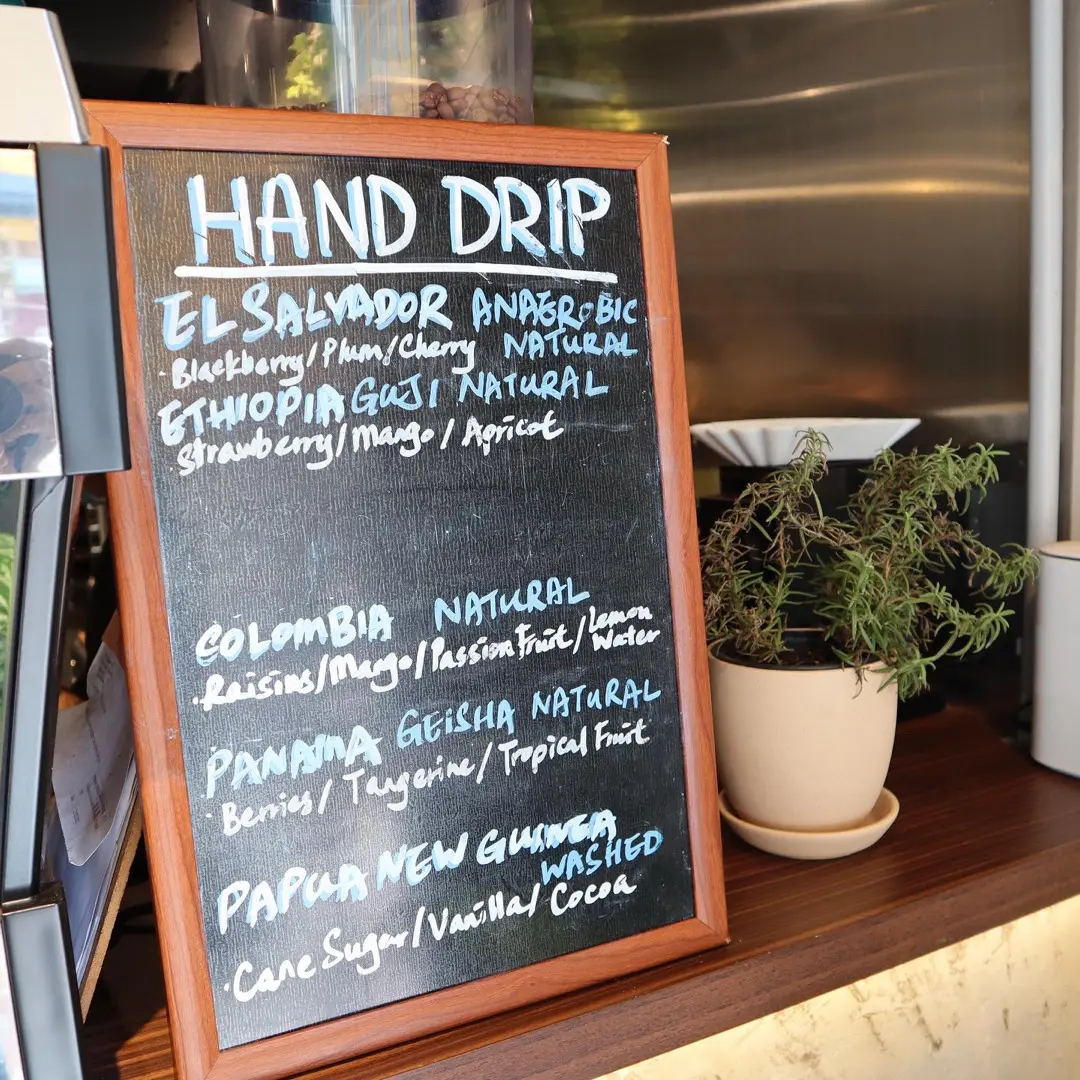 HAND DRIP
EL SALVADOR ANAEROBIC
·Blackberry/Plum/Cherry NATURAL
ETHIOPIA GUJI NATURAL
·Strawberry/Mango/Apricot
COLOMBIA NATURAL
·Raisins/Mango/Passion Fruit/Lemon
Water
PANAMA GEISHA NATURAL
·Berries/Tangerine/Tropical Fruit
PAPUA NEW GUINEA
WASHED
·Cane Sugar/Vanilla/Cocoa